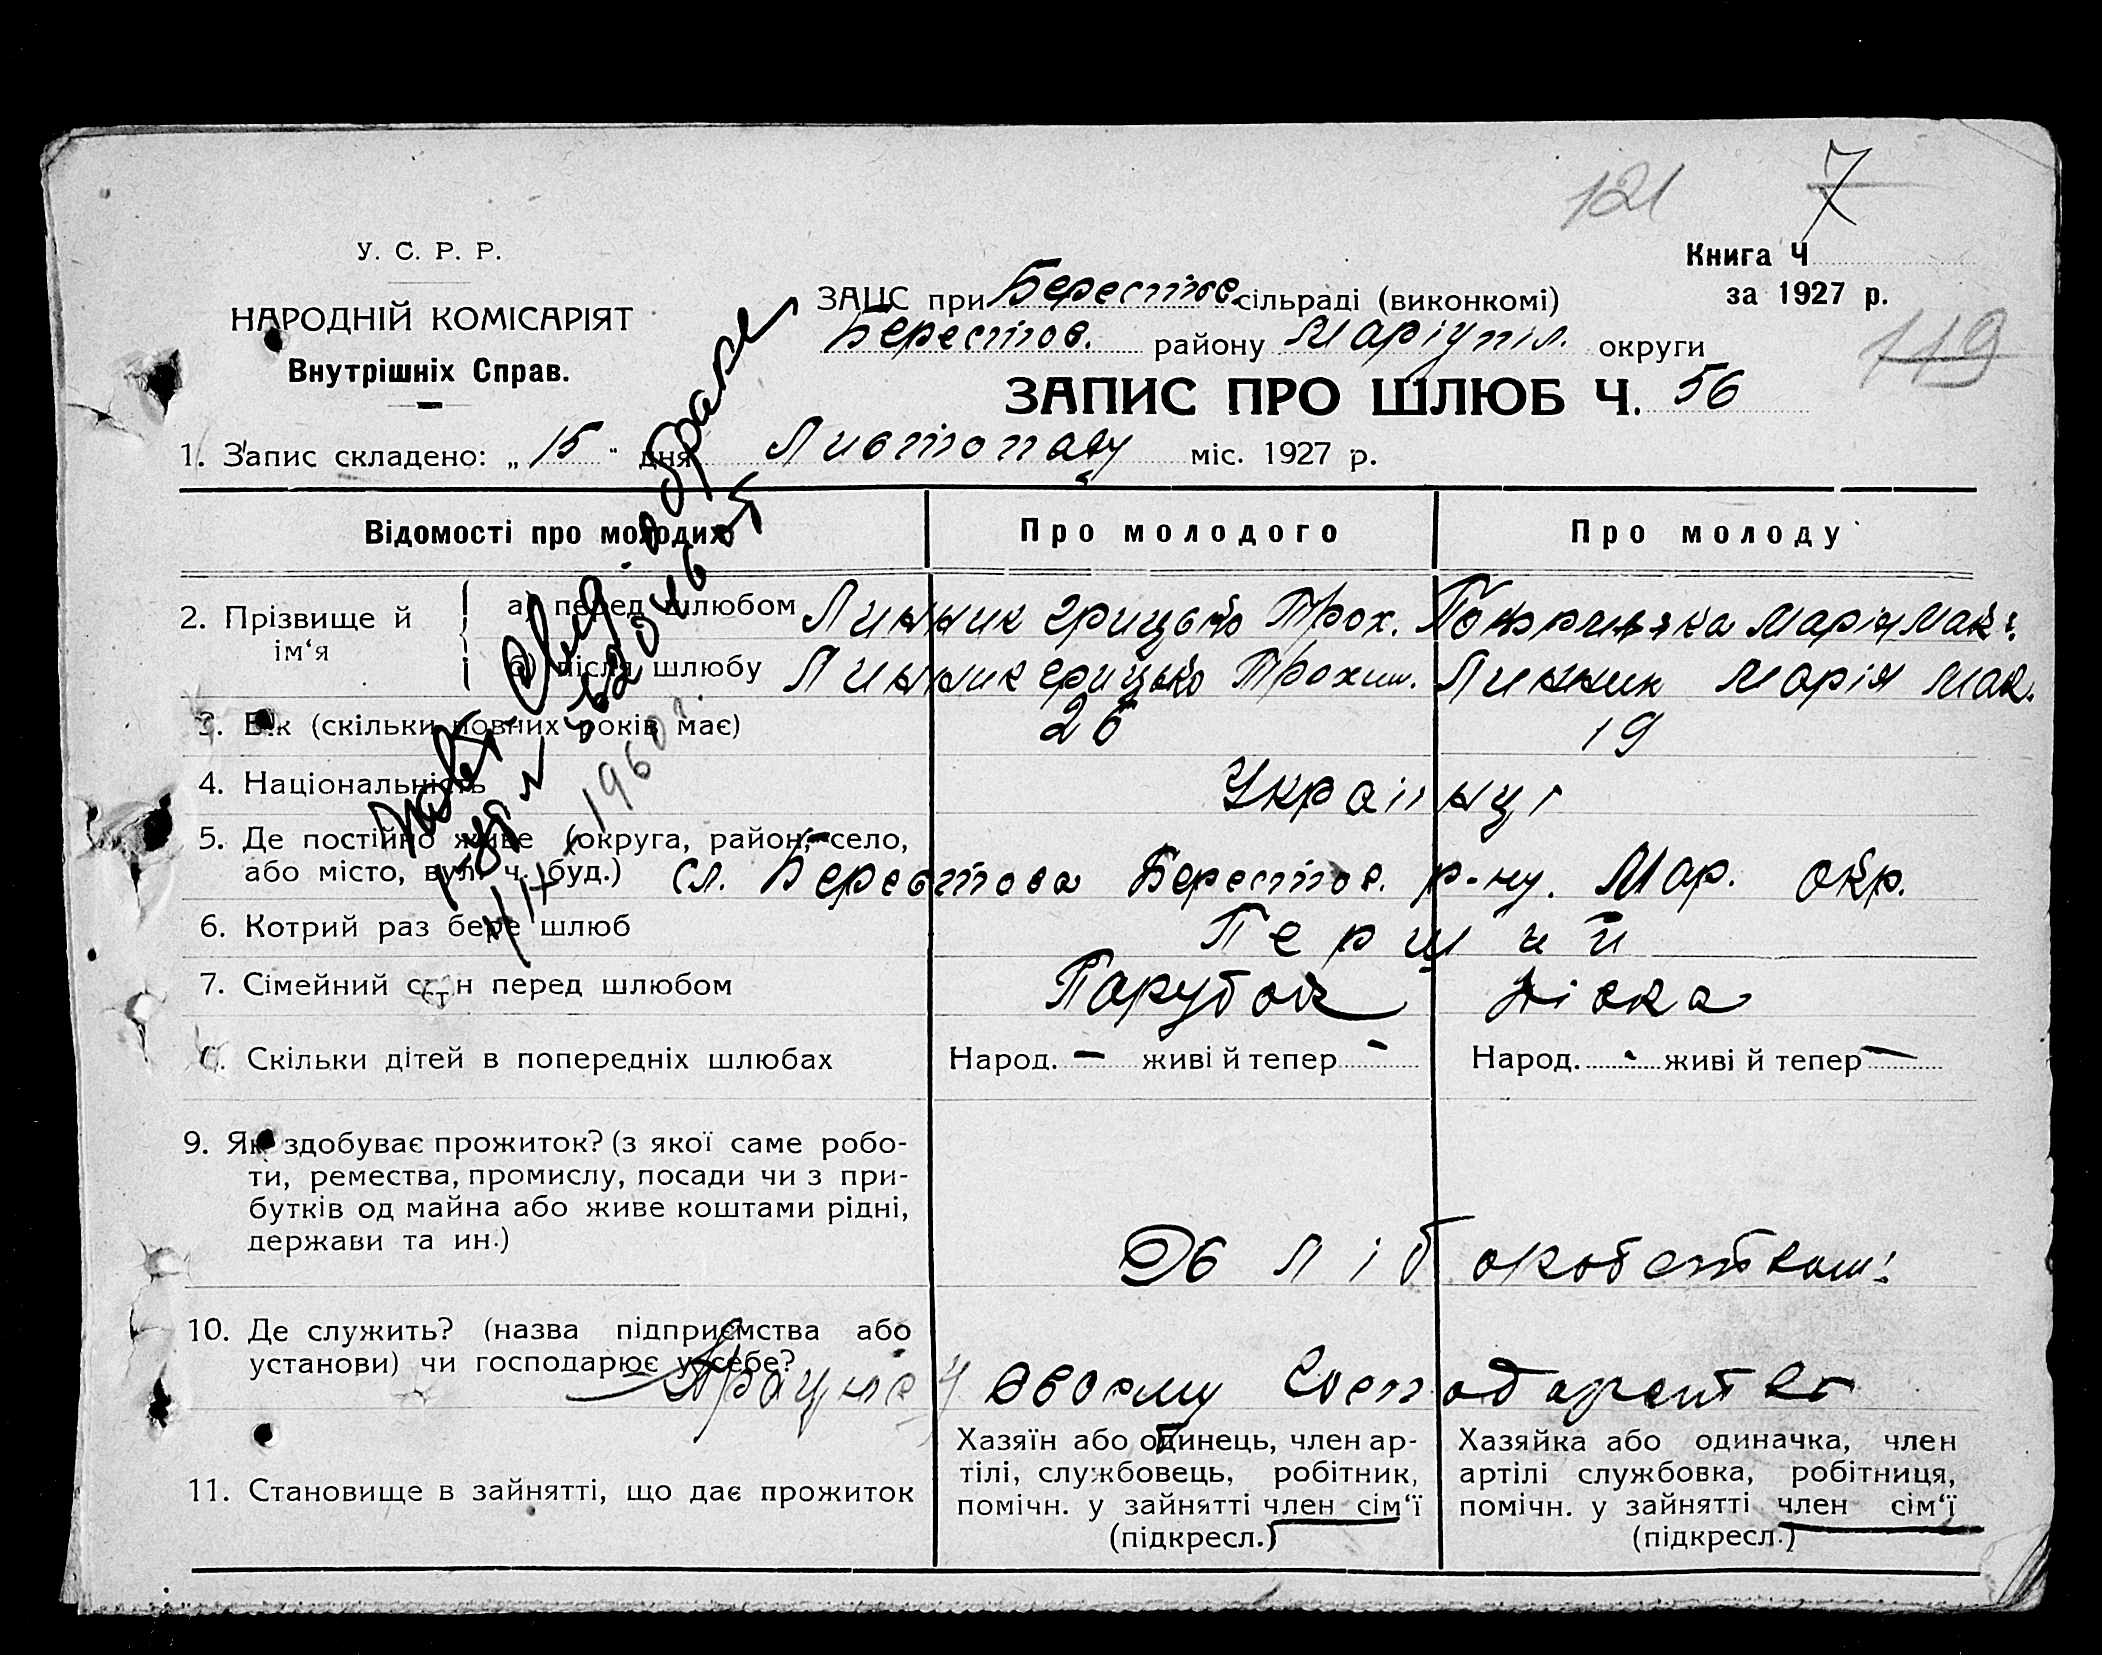 121 7
У. С. Р. Р.
Книга Ч
НАРОДНІЙ КОМІСАРІЯТ
ЗАЦС при Берестов. сільраді (виконкомі)
за 1927 р.
Внутрішніх Справ.
Берестов. району Маріупіл. округи
119
ЗАПИС ПРО ШЛЮБ Ч. 56
1. Запис складено: „ 15 " дня Листопаду міс. 1927 р.
Відомості про молодих
Про молодого
Про молоду
2. Прізвище й ім‘я
а) перед шлюбом Линник Грицько Трох. Марія Мак.
б) після шлюбу Линник Грицько Трохим. Линник Марія Мак.
3. Вік (скільки повних років має) 26 19
4. Національність Українці
5. Де постійно живе (округа, район, село,
або місто, вул. ч. буд.) сл. Берестова Берестов. р-ну. Мар. окр.
6. Котрий раз бере шлюб Перший
7. Сімейний стан перед шлюбом Парубок Дівка
Скільки дітей в попередніх шлюбах Народ. – живі й тепер – Народ. - живі й тепер –
9. Як здобуває прожиток? (з якої саме робо-
ти, ремества, промислу, посади чи з при-
бутків од майна або живе коштами рідні,
держави та ин.)
хліборобством
10. Де служить? (назва підприємства або
установи) чи господарює у себе?
Працює у своєму господарстві
11. Становище в зайнятті, що дає прожиток
Хазяїн або одинець, член ар-
тілі, службовець, робітник,
помічн. у зайнятті член сім‘ї
(підкресл.)
Хазяйка або одиначка, член
артілі службовка, робітниця,
помічн. у зайнятті член сім‘ї
(підкресл.)
свид. о браке
1960